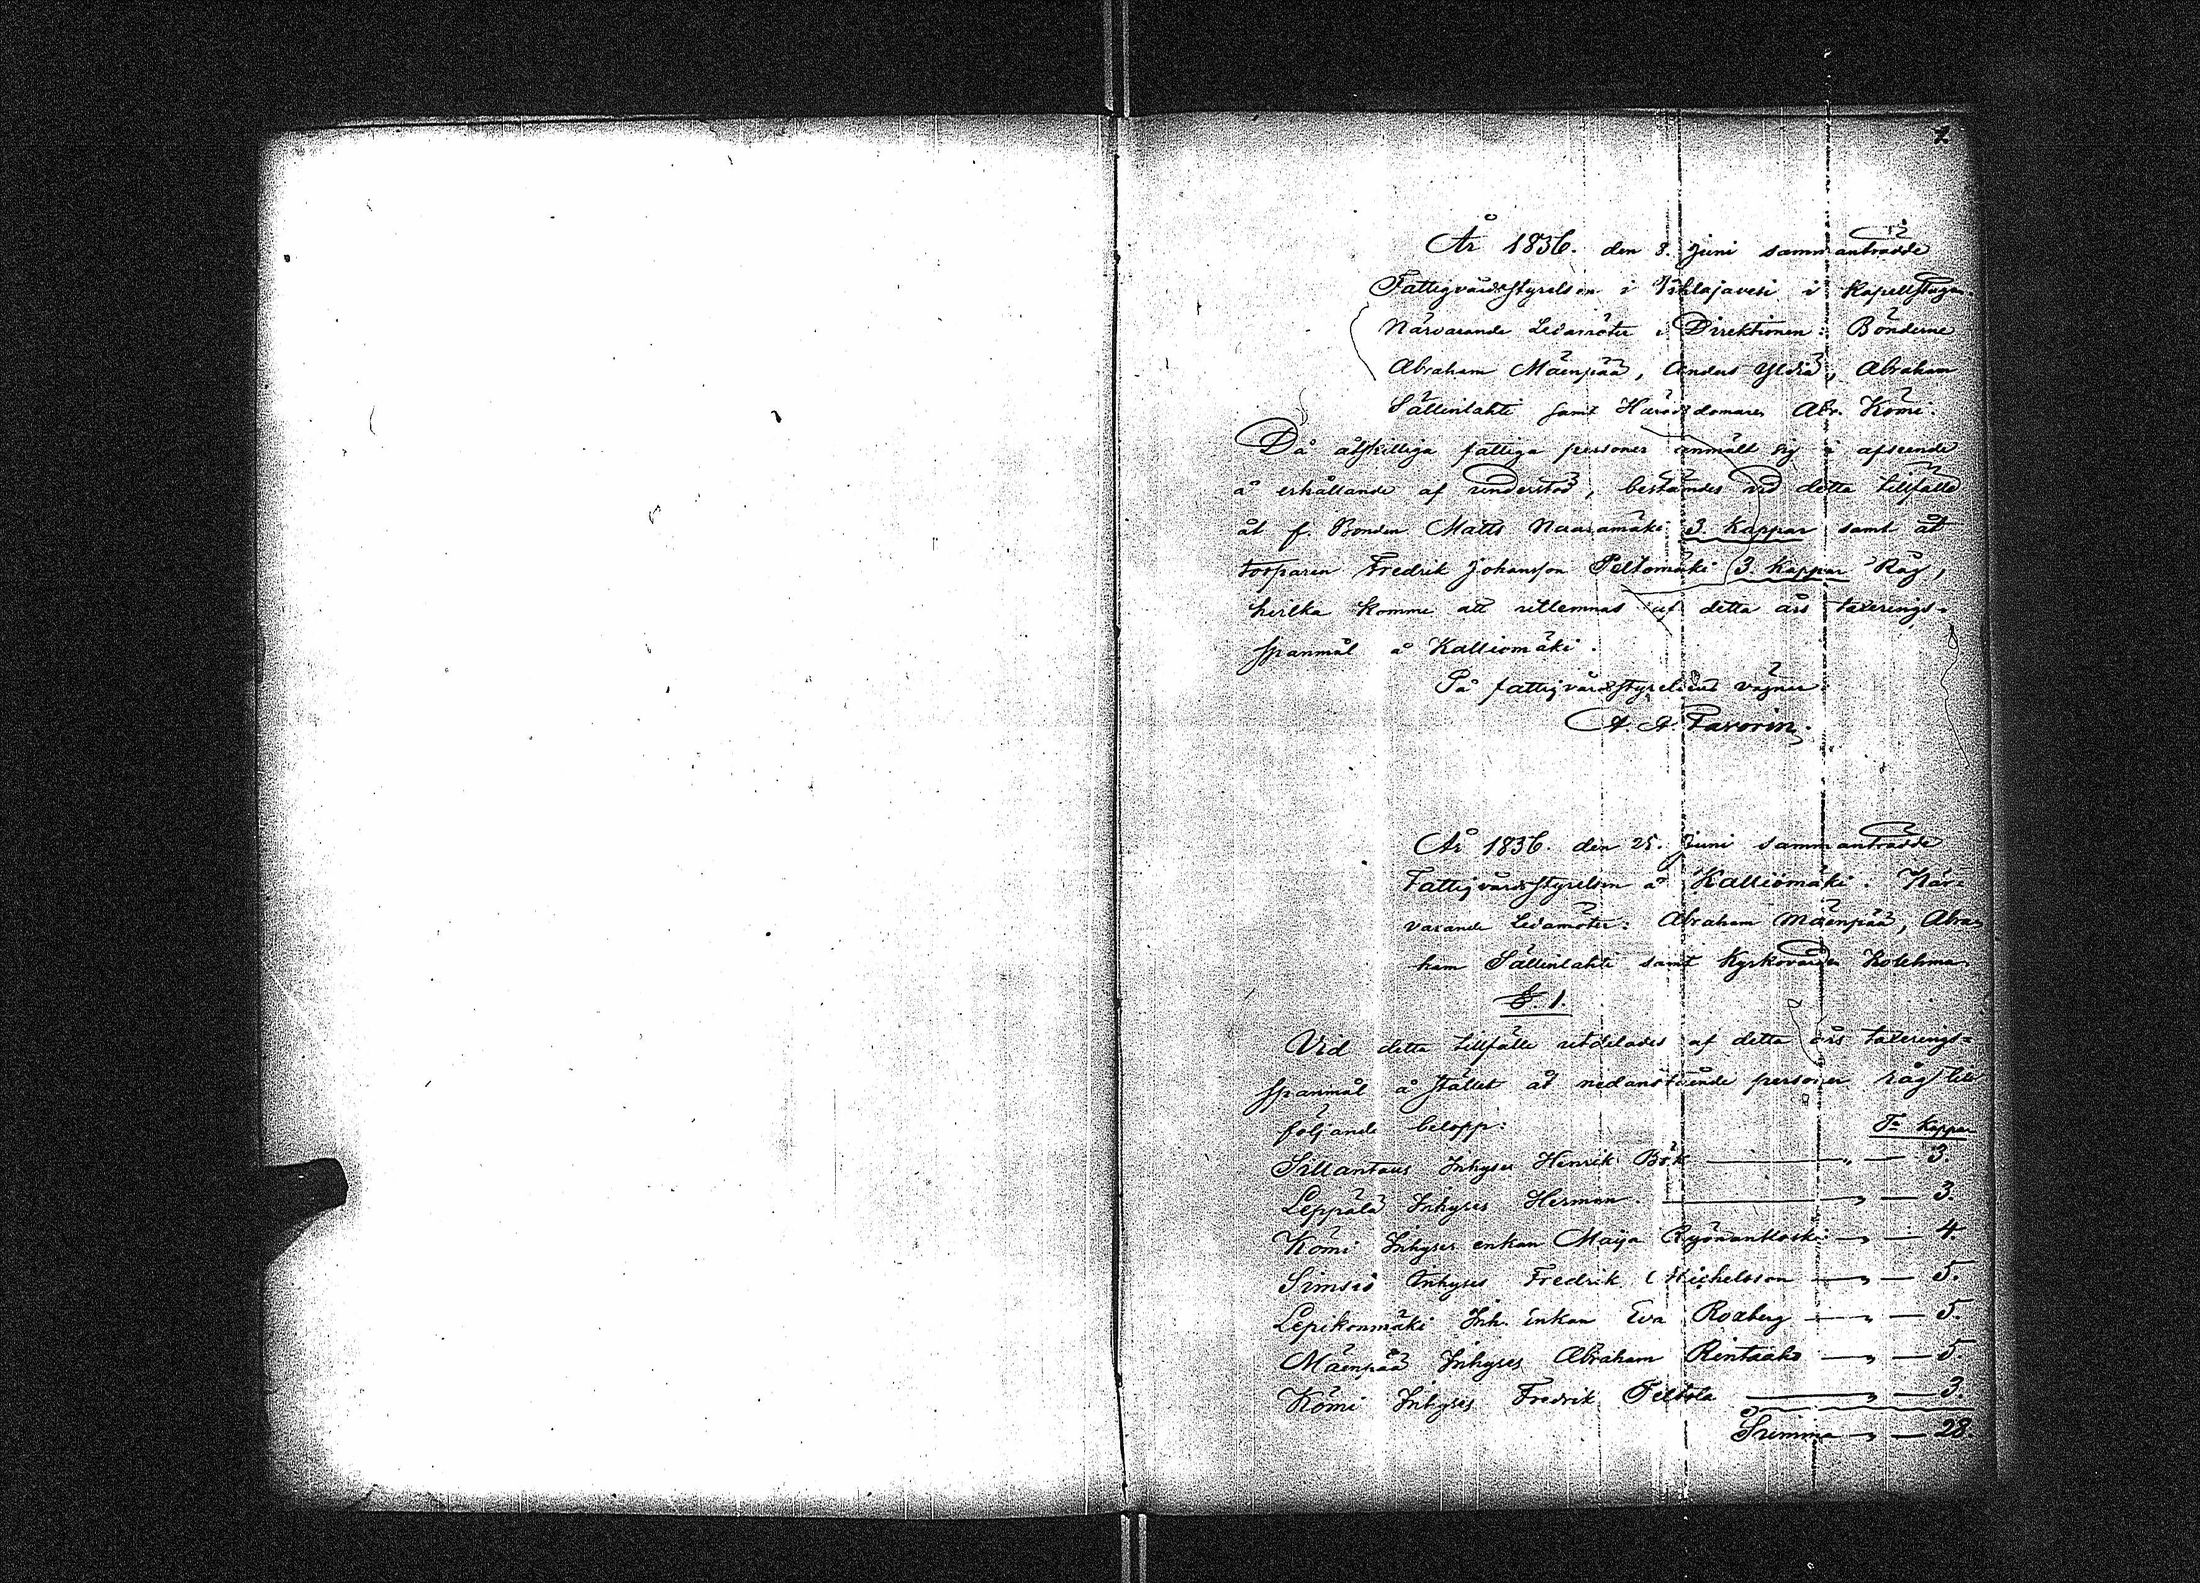 1.
År 1836. den 8. Juni sammanträdde
Fattigvårdsstyrelsen i Pihlajavesi i Kapellstugan.
Närvarande Ledamöter i Direktionen: Bönderne
Abraham Mäenpää, Anders Ylhä, Abraham
Sällinlahti samt Häradsdomaren Abr. Kömi.
Då åtskilliga fattiga personer anmält sig i afseende
å erhållande af understöd, bestämdes vid detta tillfälle
åt f. Bonden Matts Naaramäki 3. Kappar samt åt
torparen Fredrik Johansson Peltomäki 3 Kappar Råg,
hvilka komme att utlemnas af detta års taxerings-
spanmål å Kalliomäki.
På fattigvårdsstyrelsens vägnar:
A. A. Favorin.
År 1836. den 25. Juni sammanträdde
Fattigvårdsstyrelsen å Kalliomäki. När-
varande Ledamöter: Abraham Mäenpää, Abra-
ham Sällinlahti samt Kyrkovärden
§. 1.
Vid detta tillfälle utdelades af detta års taxerings-
spanmål å stället åt nedanstående personer råg till
följande belopp:
Tr Kappar
Sillantaus Inhyses Henrik Bök — „ — 3.
Leppälä Inhyses Herman. — „ — 3.
Kömi Inhyses enkan Maija Ryönänkoski — „ — 4.
Simsiö Inhyses Fredrik Michelsson — „ — 5.
Lepikonmäki Inh. enkan Eva Roxberg — „ — 5.
Mäenpää Inhyses Abraham Rintaaho — „ — 5
Kömi Inhyses Fredrik Peltola — „ — 3.
Summa „ — 28